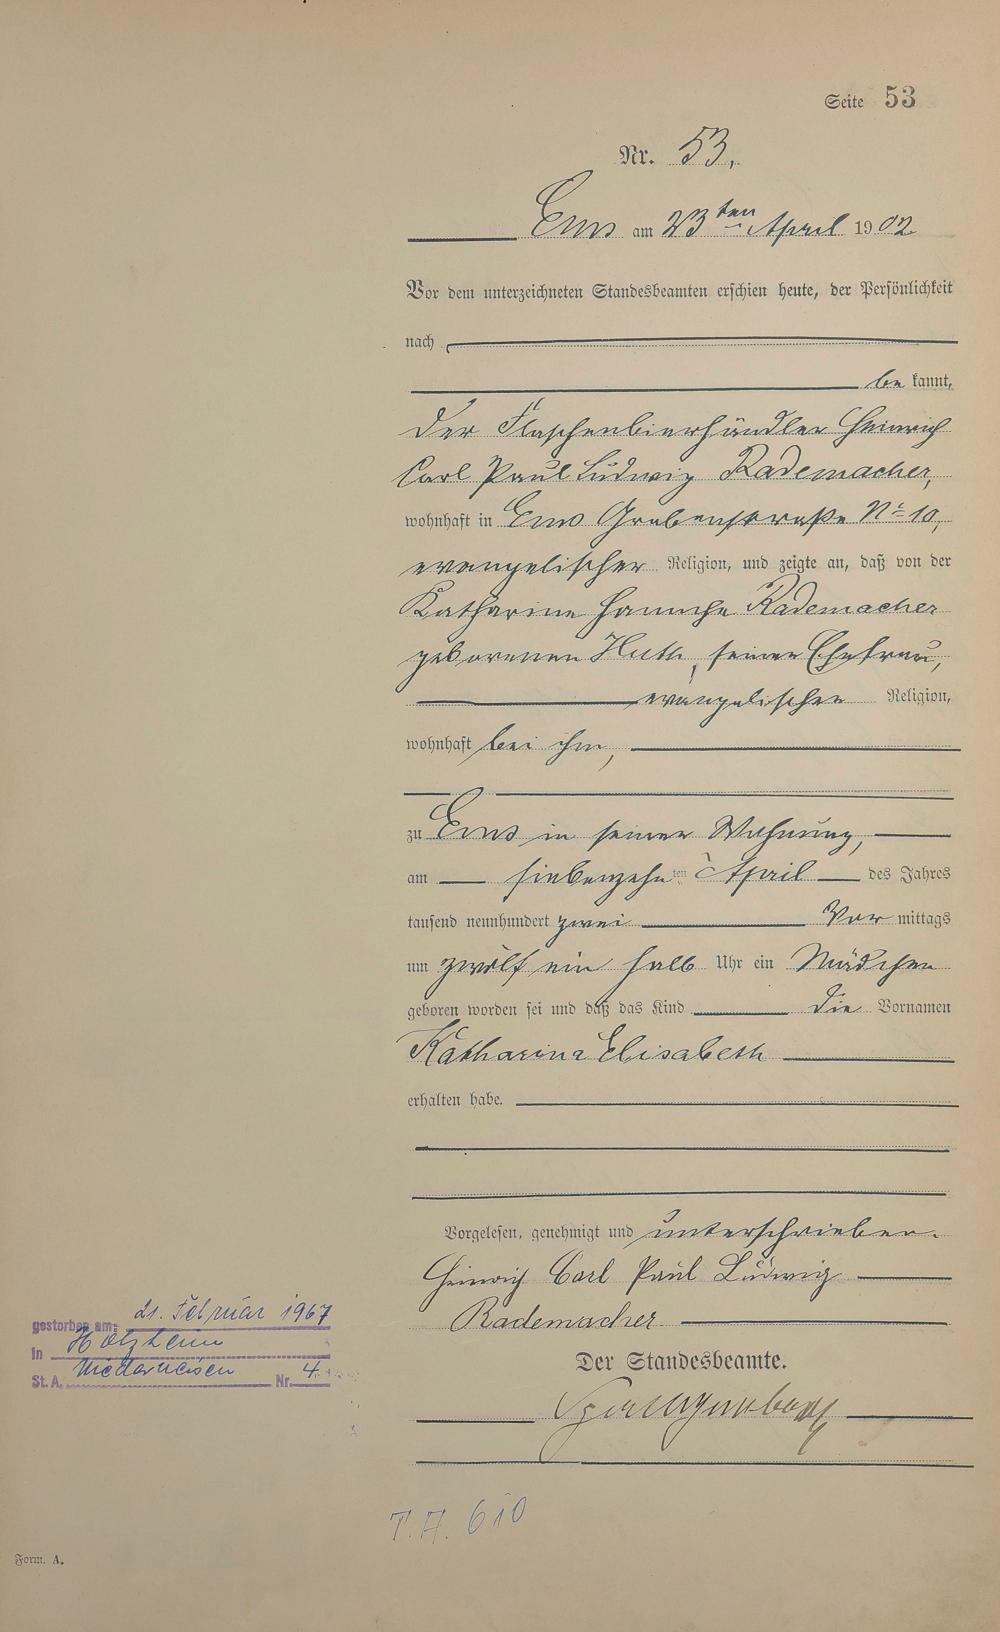 Seite 53
Nr. 53.
Ems am 23ten April 1902
Vor dem unterzeichneten Standesbeamten erschien heute, der Persönlichkeit
nach
bekannt,
der Flaschenbierhändler Heinrich
Carl Paul Ludwig Rademacher,
wohnhaft in Ems Grabenstraße No 10,
evangelischer Religion, und zeigte an, daß von der
Katharine Rademacher
geborenen Huth, seiner Ehefrau,
evangelischen Religion,
wohnhaft bei ihm,
zu Ems in seiner Wohnung,
am siebenzehnten April des Jahres
tausend neunhundert zwei Vormittags
um zwölf ein halb Uhr ein Mädchen
geboren worden sei und daß das Kind die Vornamen
Katharina Elisabeth
erhalten habe.
Vorgelesen, genehmigt und unterschrieben.
Heinrich Carl Paul Ludwig
Rademacher
Der Standesbeamte.
gestorben am: 21. Februar 1967
in Holzheim
St. A. Niederneisen Nr. 4
T. A. 610
Form. A.